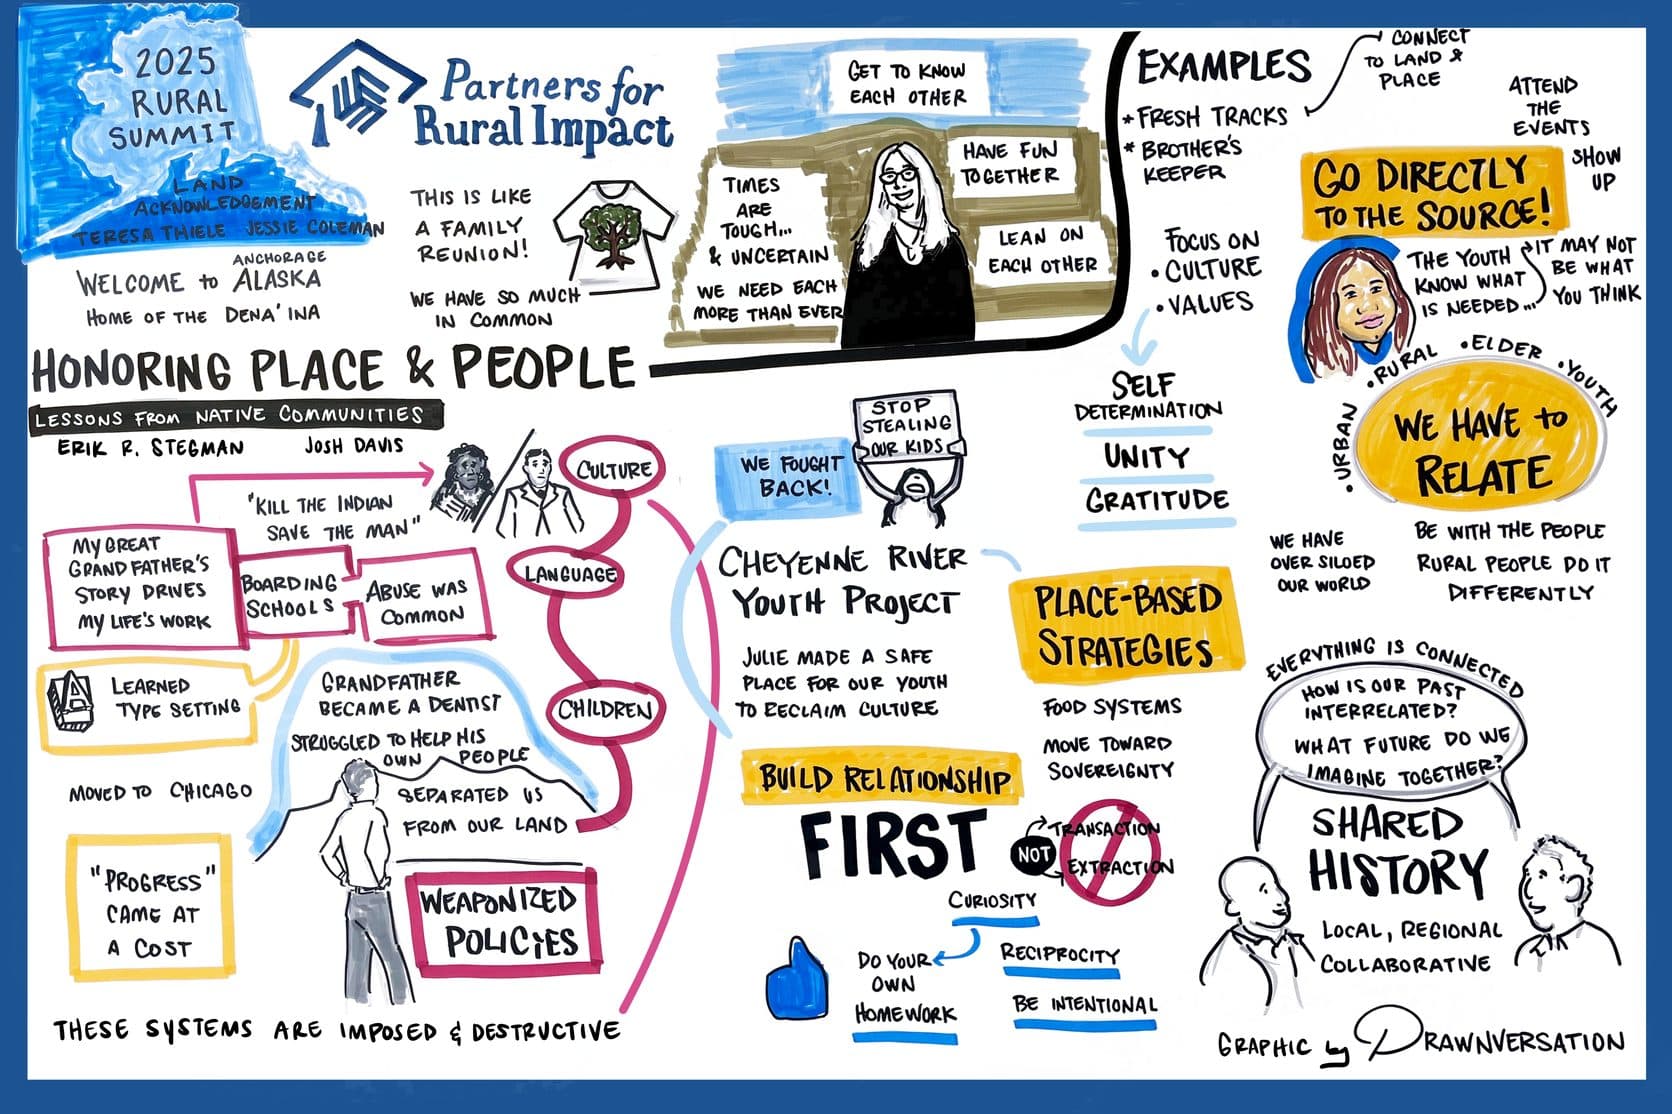 2025
RURAL
SUMMIT
LAND
ACKNOWLEDGEMENT
TERESA THIELE JESSIE COLEMAN
ANCHORAGE
WELCOME to ALASKA
HOME OF THE DENA'INA
Partners for
Rural Impact
THIS IS LIKE
A FAMILY
REUNION!
WE HAVE SO MUCH
IN COMMON
GET TO KNOW
EACH OTHER
TIMES
ARE
TOUGH...
& UNCERTAIN
WE NEED EACH
MORE THAN EVER
HAVE FUN
TOGETHER
LEAN ON
EACH OTHER
HONORING PLACE & PEOPLE
LESSONS FROM NATIVE COMMUNITIES
ERIK R. STEGMAN JOSH DAVIS
"KILL THE INDIAN
SAVE THE MAN"
MY GREAT
GRANDFATHER'S
STORY DRIVES
MY LIFE'S WORK
BOARDING
SCHOOLS
ABUSE WAS
COMMON
CULTURE
LANGUAGE
CHILDREN
LEARNED
TYPE SETTING
A
MOVED TO CHICAGO
"PROGRESS"
CAME AT
A COST
GRANDFATHER
BECAME A DENTIST
STRUGGLED TO HELP HIS
OWN PEOPLE
SEPARATED US
FROM OUR LAND
WEAPONIZED
POLICIES
THESE SYSTEMS ARE IMPOSED & DESTRUCTIVE
WE FOUGHT
BACK!
STOP
STEALING
OUR KIDS
CHEYENNE RIVER
YOUTH PROJECT
JULIE MADE A SAFE
PLACE FOR OUR YOUTH
TO RECLAIM CULTURE
BUILD RELATIONSHIP
FIRST
NOT
TRANSACTION
EXTRACTION
CURIOSITY
DO YOUR
OWN
HOMEWORK
RECIPROCITY
BE INTENTIONAL
EXAMPLES
* FRESH TRACKS
* BROTHER'S
KEEPER
CONNECT
TO LAND &
PLACE
FOCUS ON
• CULTURE
• VALUES
SELF
DETERMINATION
UNITY
GRATITUDE
PLACE-BASED
STRATEGIES
FOOD SYSTEMS
MOVE TOWARD
SOVEREIGNTY
ATTEND
THE
EVENTS
SHOW
UP
GO DIRECTLY
TO THE SOURCE!
THE YOUTH
KNOW WHAT
IS NEEDED...
IT MAY NOT
BE WHAT
YOU THINK
• URBAN
• RURAL
• ELDER
• YOUTH
WE HAVE to
RELATE
WE HAVE
OVER SILOED
OUR WORLD
BE WITH THE PEOPLE
RURAL PEOPLE DO IT
DIFFERENTLY
EVERYTHING IS CONNECTED
HOW IS OUR PAST
INTERRELATED?
WHAT FUTURE DO WE
IMAGINE TOGETHER?
SHARED
HISTORY
LOCAL, REGIONAL
COLLABORATIVE
GRAPHIC by DRAWNVERSATION